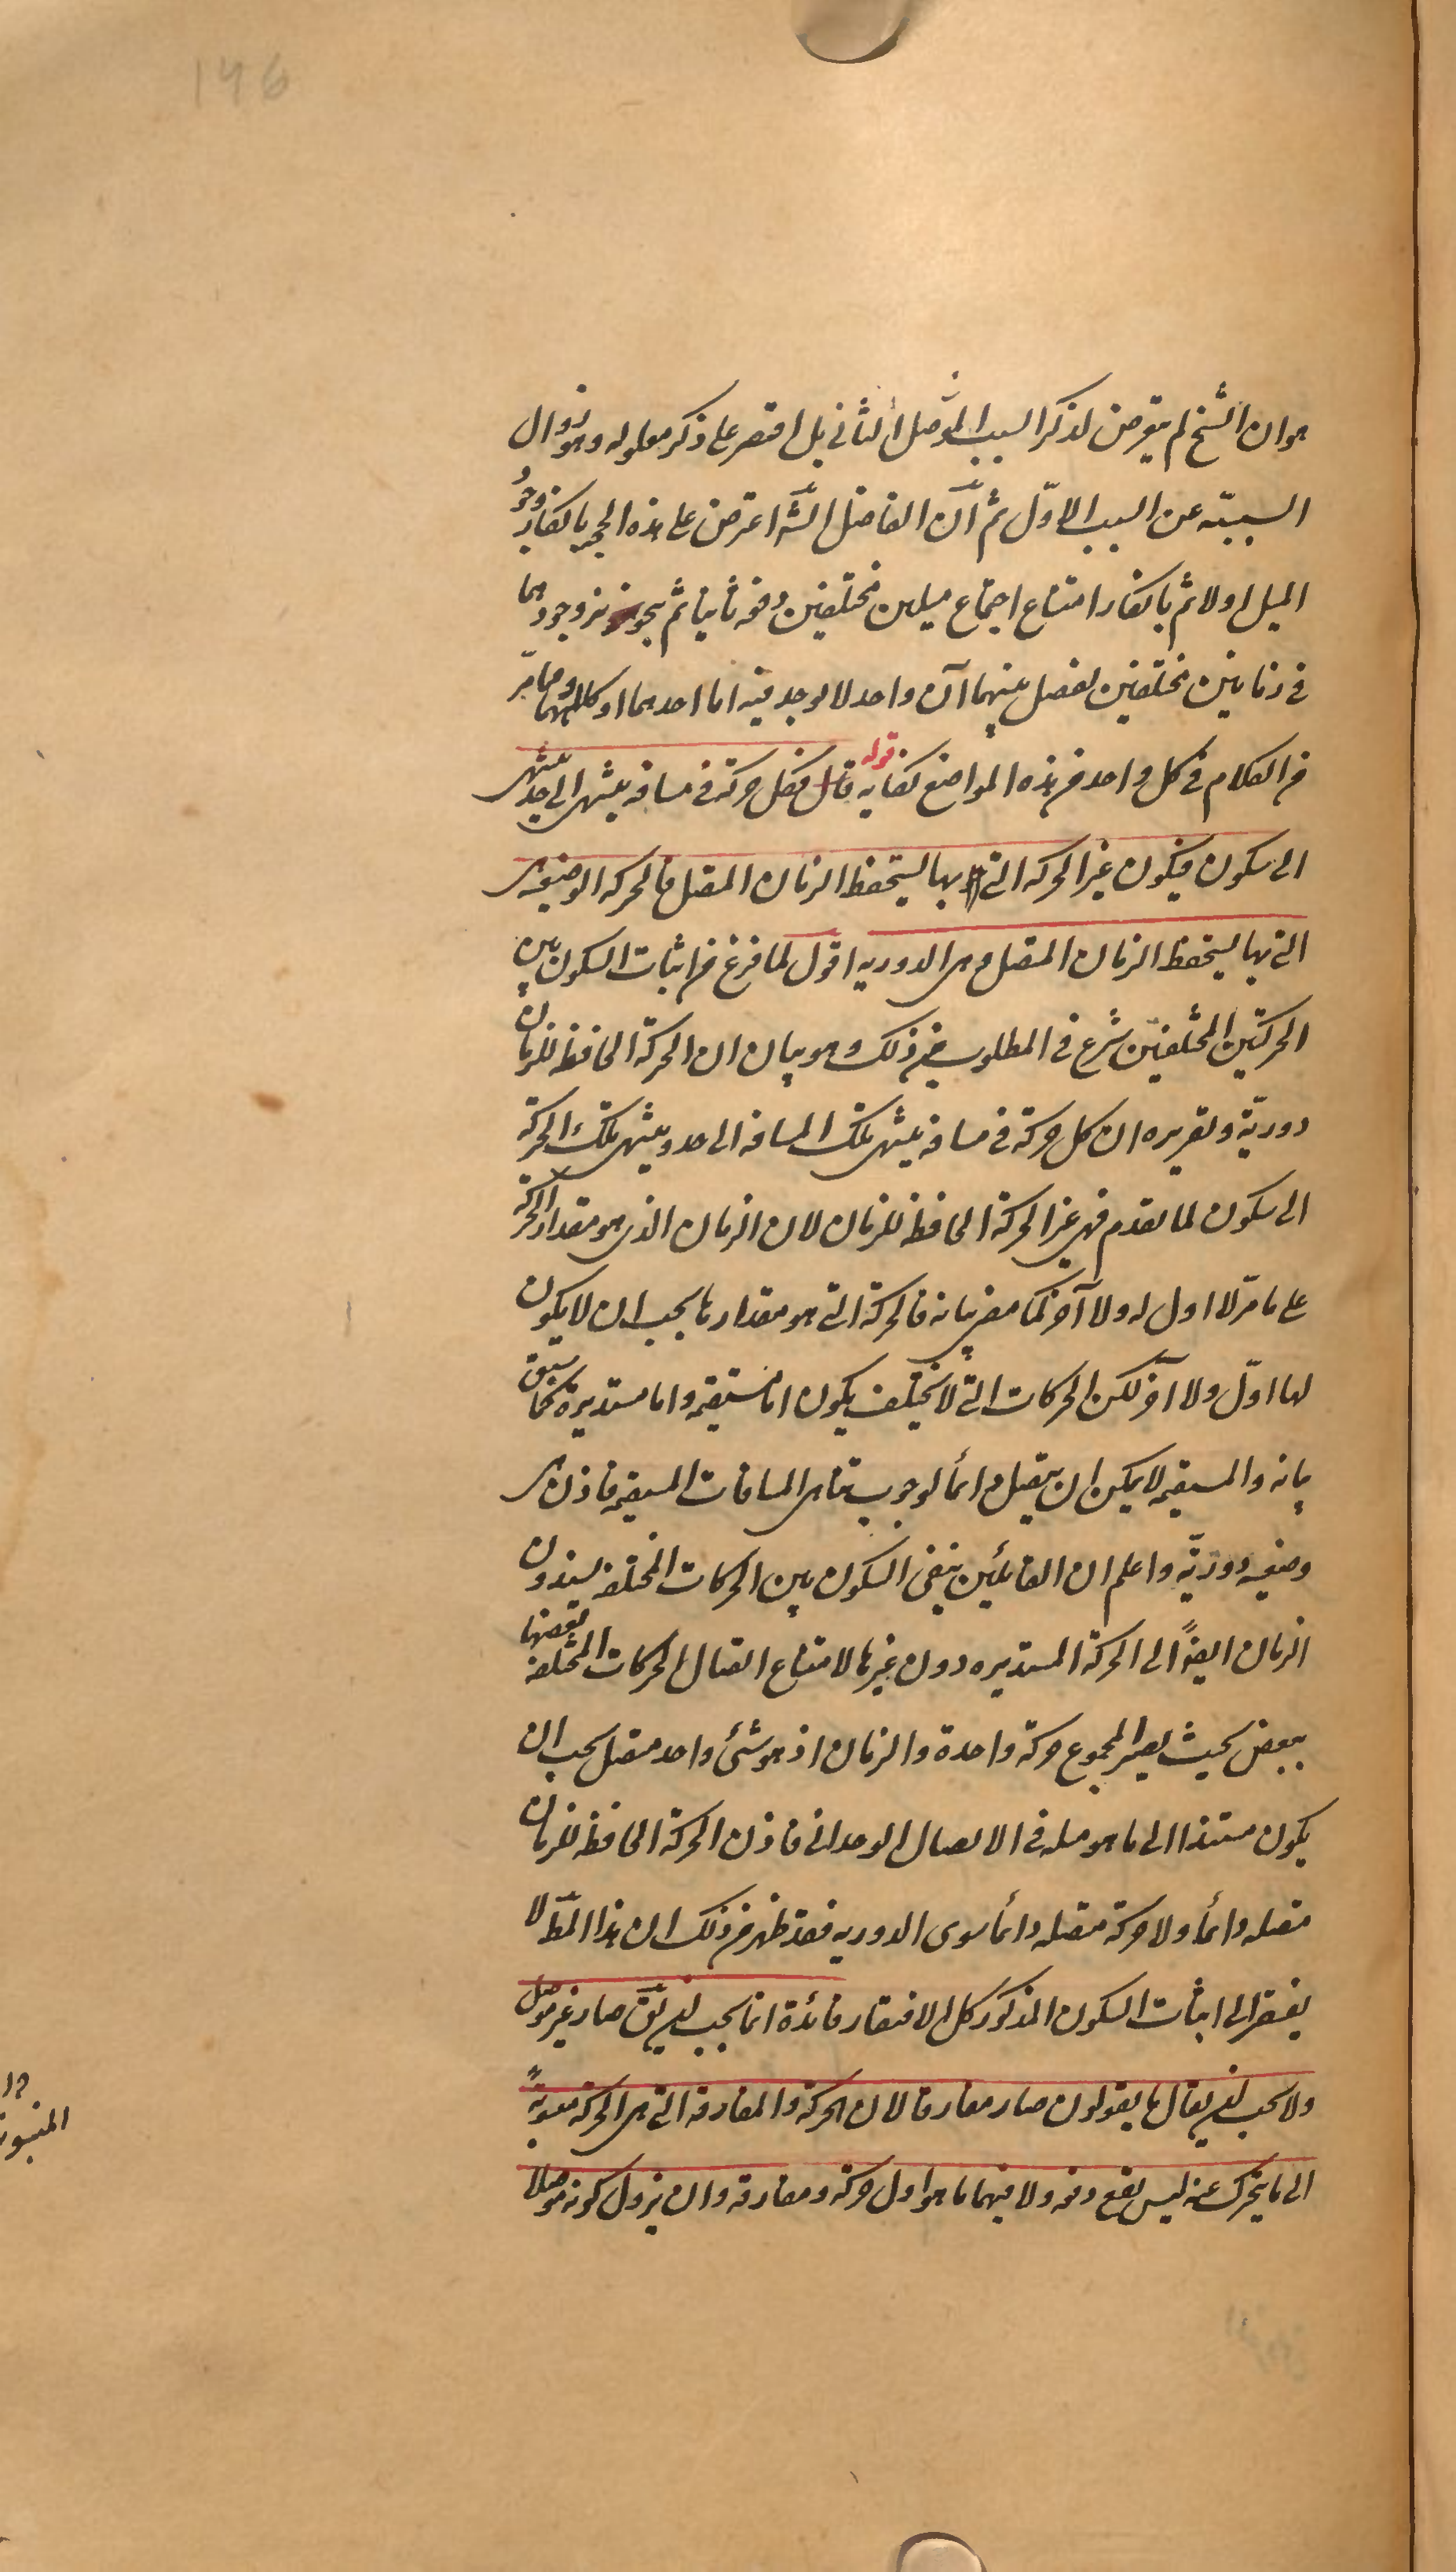 146
هو ان الشيخ لم يتعرض لذكر السبب الموصل الثانى بل اقتصر على ذكر معلوله وهو زوال
السببيّة عن السبب الاوّل ثم انّ الفاضل الشّه اعترض على هذه الحجة بانكار وجود
الميل اولا ثم بانكار امتناع اجتماع ميلين مختلفين دفعه ثانيا ثم بتجويز وجودهما
فى زمانين مختلفين يفصل بينهما آن واحد لا يوجد فيه اما احدهما او كلاهما وفيما مرّ
من الكلام فى كل واحد من هذه المواضع كفايه قوله فكل حركة فى مسافه ينتهى الى حد ينتهى
الى سكون فيكون غير الحركه التى بها يستحفظ الزمان المتصل فالحركه الوضعيه هى
التى بها يستحفظ الزمان المتصل وهى الدوريه اقول لما فرغ من اثبات السكون بين
الحركتين المختلفتين شرع فى المطلوب من ذلك وهو بيان ان الحركة الحافظه للزمان
دوريّة وتقريره ان كل حركة فى مسافه ينتهى تلك المسافه الى حد وينتهى تلك الحركة
الى سكون لما تقدم فهى غير الحركة الحافظه للزمان لان الزمان الذى هو مقدار الحركة
على ما مرّ لا اول له ولا آخر كما مضى بيانه فالحركة التى هو مقدارها يجب ان لا يكون
لها اوّل ولا آخر لكن الحركات التى لا تختلف يكون اما مستقيمه واما مستديرة كما سبق
بيانه والمستقيمه لا يمكن ان يتصل دائماً لوجوب تناهى المسافات المستقيمه فاذن هى
وضعيه دوريّة واعلم ان القائلين بنفى السكون بين الحركات المختلفه يسندون
الزمان ايضاً الى الحركة المستديره دون غيرها لامتناع اتصال الحركات المختلفه بعضها
ببعض بحيث يصير المجموع حركة واحدة والزمان اذ هو شئ واحد متصل يجب ان
يكون مستندا الى ما هو مثله فى الاتصال الوحدانى فاذن الحركة الحافظه للزمان
متصله دائماً ولا حركة متصله دائما سوى الدوريه فقد ظهر من ذلك ان هذا المط لا
يفتقر الى اثبات السكون المذكور كل الافتقار فائدة انما يجب ان يق صار غير موصل
ولا يجب ان يقال ما يقولون صار مفارقا لان الحركة والمفارقه التى هى الحركة منسوبةً
الى ما يتحرك عنه ليس يقع دفعه ولا فيهما ما هو اول حركة ومفارقه وان يزول كونه موصلا
المنسوبة